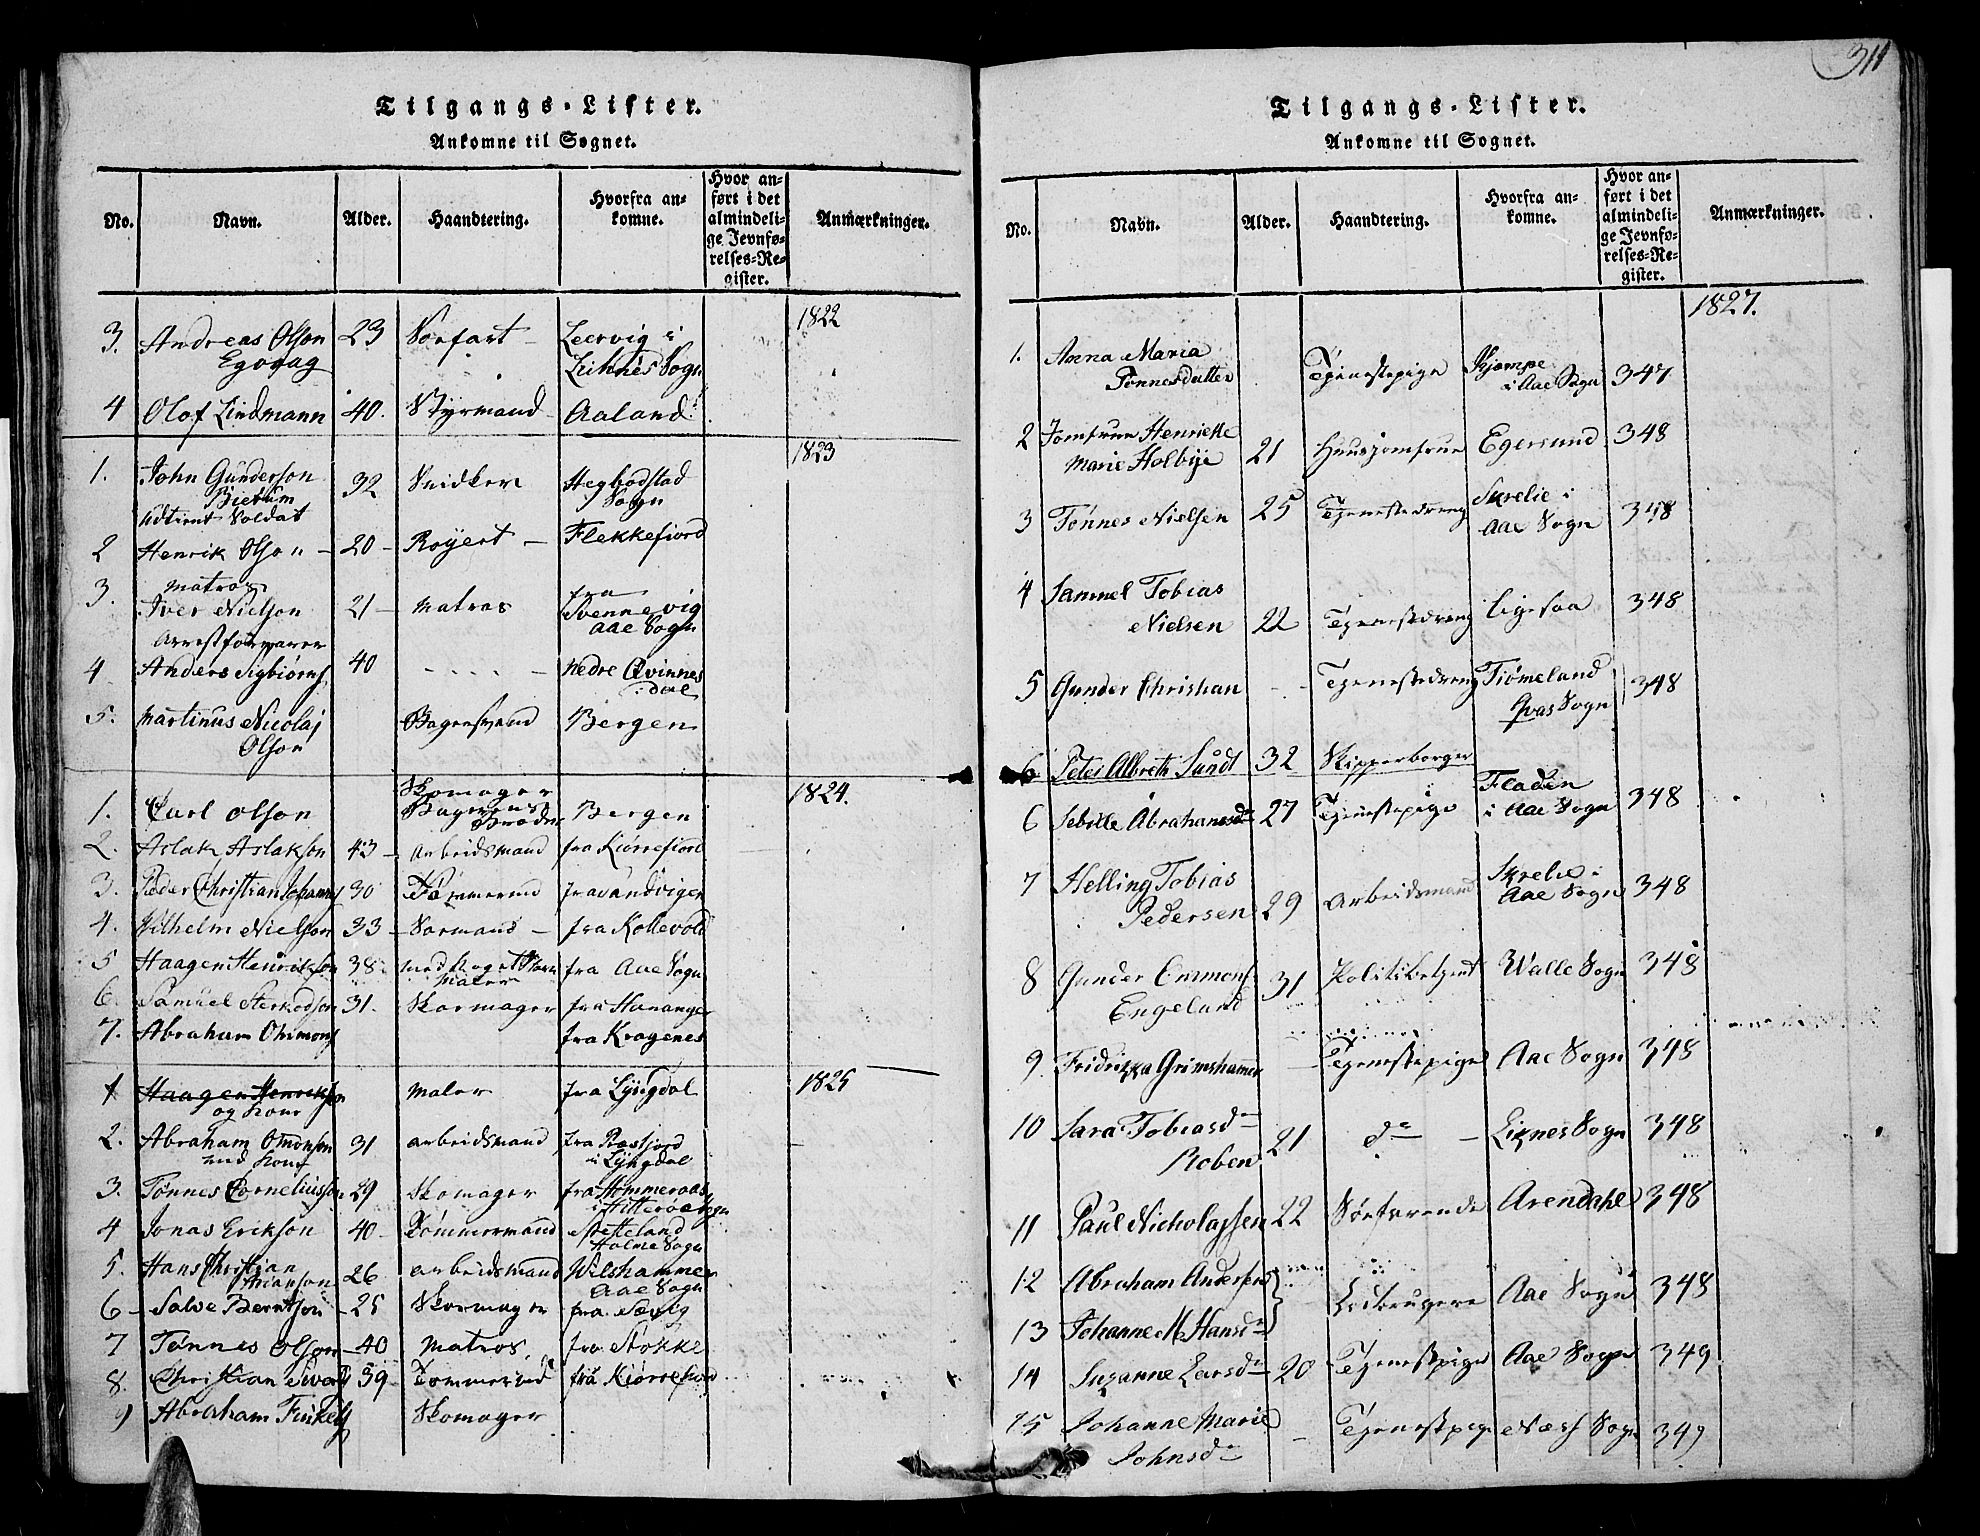 311
Tilgangs-Lister.
Ankomne til Sognet.
No. Navn. Alder. Haandtering. Hvorfra ankomne. Hvor anført i det almindelige Jevnførelses-Register. Anmærkninger.
1822
3. Andreas Olson 23 Leervig i
Liknes Sogn
4 Olof Lindmann 40. Styrmand Aaland
1823
1. John Gunderson 32 Snidker Hegbodstad
Bietum Sogn
Soldat
2 Henrik Olson - 20 - Flekkefiord
Matros fra
3. Iver Nielson 21 - Matros Svennevig
Aae Sogn
Arrestforvarer
4 Anders Sigbiørns 40 - Nedre Qvinnes
dal
5. Martinus Nicolaj Bagersvend Bergen
Olson
1824.
Skomager
1. Carl Olson Bergen
2. Aslak Aslakson 43 - Arbeidsmand fra Kiørrefiord
3. Peder Christian 30
4. Wilhelm Nielson 33 - fra Kollevold
5 Haagen Henrikson 38 fra Aae Sogn
Maler
6. Samuel 31. Skomager fra Hananger
7. Abraham fra Kragenes
1825
1 Haagen Henrikson Maler fra Lyngdal
og Kone
2. Abraham Omonson 31 arbeidsmand fra Rosfjord
med Kone i Lyngdal
3. Tønnes Corneliusson 29 Skomager fra Hommeraas
i Hitterøe Sogn
4 Jonas Erikson 40 - Tømmermand Stetteland
Holme Sogn
5. Hans Christian 26 arbeidsmand Wilshammer
Aae Sogn
6 - Salve Berntson - 25 Skomager fra Sævig
7 Tønnes Olson - 40 Matros fra Stokke
8. Christian 59 fra Kiørrefiord
9 Abraham Skomager
Tilgangs-Lister.
Ankomne til Sognet.
No. Navn. Alder. Haandtering. Hvorfra ankomne. Hvor anført i det almindelige Jevnførelses-Register. Anmærkninger.
1827.
1. Anna Maria Tjenestepige
Tønnesdatter i Aae Sogn 347
2 Jomfrue Henriette 21 Huusjomfrue Egersund 348
Marie Holbye
3 Tønnes Nielsen 25 Tjenestedreng Skrelie i 348
Aae Sogn
4 Samuel Tobias
Nielsen 22 Tjenestedreng 348
5 Gunder Christian - - Tjenestedreng Tiømeland 348
Qvas Sogn
6 Peter Albreth Sundt 32 Skipperborger
6 Sebille Abrahamsdr 27 Tjenestepige Fladen
i Aae Sogn 348
7 Helling Tobias
Pedersen 29 Arbeidsmand Skrelie i
Aae Sogn 348
8 Gunder Emmons 31 Politibetjent Walle Sogn 348
Engeland
9. Fridrikka Grimshammer - Tjenestepige Aae Sogn 348
10 Sara Tobiasdr
Roben 21 do - Liknes Sogn 348
11 Paul Nicholajsen 22 Søefarende Arendahl 348
12 Abraham Andersen
Aae Sogn 348
13 Johanne M. Hansdr
14 Suzanne Larsdr 20 Tjenestpige Aae Sogn 349
15 Johanne Marie - Tjenestpige Næss Sogn 349
Johnsdr